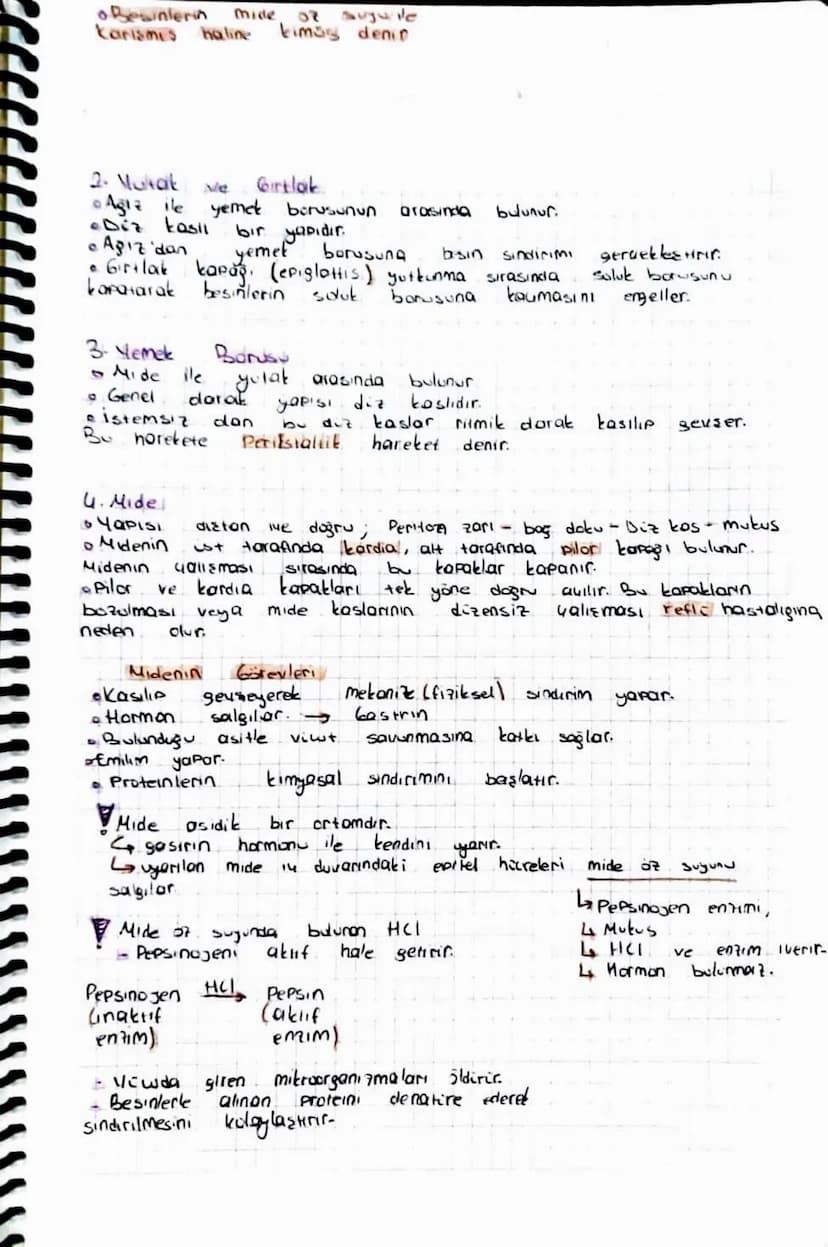 Besinlerin mide öz suyu ile
karışmış haline kimüs denir
2. Yutak ve Gırtlak
Ağız ile yemek borusunun arasında bulunur.
Düz kaslı bir yapıdır.
Ağız'dan yemek borusuna besin sindirimi gerçekleştirir.
Gırtlak kapağı (epiglottis) yutkunma sırasında soluk borusunu
kapatarak besinlerin soluk borusuna kaçmasını engeller.
3. Yemek Borusu
Mide ile yutak arasında bulunur
Genel olarak yapısı düz kaslıdır.
İstemsiz olan bu düz kaslar ritmik olarak kasılıp gevşer.
Bu harekete Peristaltik hareket denir.
4. Mide
Yapısı dıştan içe doğru; Periton zarı - bağ doku - Düz kas - mukus
Midenin üst tarafında kardia, alt tarafında pilor kapağı bulunur.
Midenin çalışması sırasında bu kapaklar kapanır.
Pilor ve kardia kapakları tek yöne doğru açılır. Bu kapakların
bozulması veya mide kaslarının düzensiz çalışması reflü hastalığına
neden olur.
Midenin Görevleri
Kasılıp gevşeyerek mekanik (fiziksel) sindirim yapar.
Hormon salgılar. → Gastrin
Bulunduğu asitle vücut savunmasına katkı sağlar.
Emilim yapar.
Proteinlerin kimyasal sindirimini başlatır.
! Mide asidik bir ortamdır.
↳ gastrin hormonu ile kendini uyarır.
↳ uyarılan mide iç duvarındaki epitel hücreleri mide öz suyunu
salgılar
↳ Pepsinojen enzimi,
↳ Mukus
↳ HCl ve enzim içerir-
↳ Hormon bulunmaz.
! Mide öz suyunda bulunan HCl
- Pepsinojeni aktif hale getirir.
Pepsinojen HCl → Pepsin
(inaktif (aktif
enzim) enzim)
- Vücuda giren mikroorganizmaları öldürür.
- Besinlerle alınan proteini denatüre ederek
sindirilmesini kolaylaştırır-